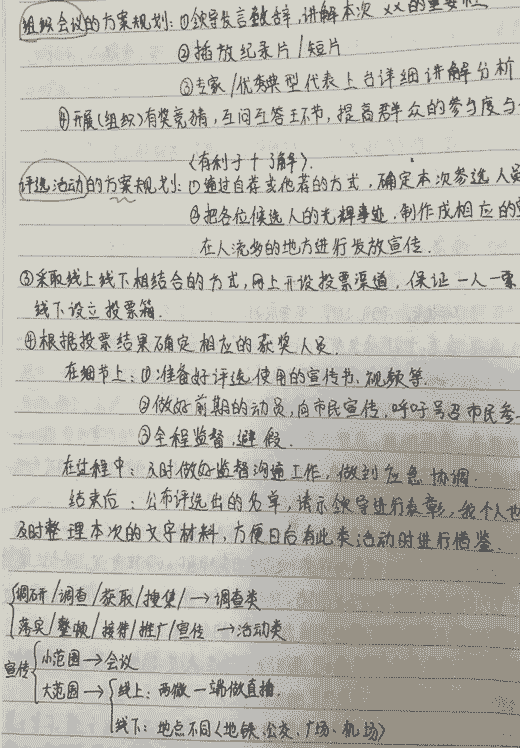 组织会议的方案规划：①领导发言致辞，讲解本次 XX的重要性
②播放纪录片/短片
③专家/优秀典型代表上台详细讲解分析
④开展(组织)有奖竞猜，互问互答环节，提高群众的参与度与
(有利于十了解).
评选活动的方案规划：①通过自荐或他荐的方式，确定本次参选人员
②把各位候选人的光辉事迹，制作成相应的
在人流多的地方进行发放宣传.
③采取线上线下相结合的方式，网上开设投票渠道，保证一人一票
线下设立投票箱.
④根据投票结果确定相应的获奖人员.
在细节上：①准备好评选使用的宣传书、视频等.
②做好前期的动员，向市民宣传，呼吁号召市民参
③全程监督，避假.
在过程中：及时做好监督沟通工作，做到应急协调.
结束后：公布评选出的名单，请示领导进行表彰，我个人也
及时整理本次的文字材料，方便日后有此类活动时进行借鉴.
调研/调查/获取/搜集/→调查类
落实/整顿/接待/推广/宣传 →活动类
宣传 小范围→会议
大范围→线上：两微一端做直播.
线下：地点不同(地铁、公交、广场、机场)